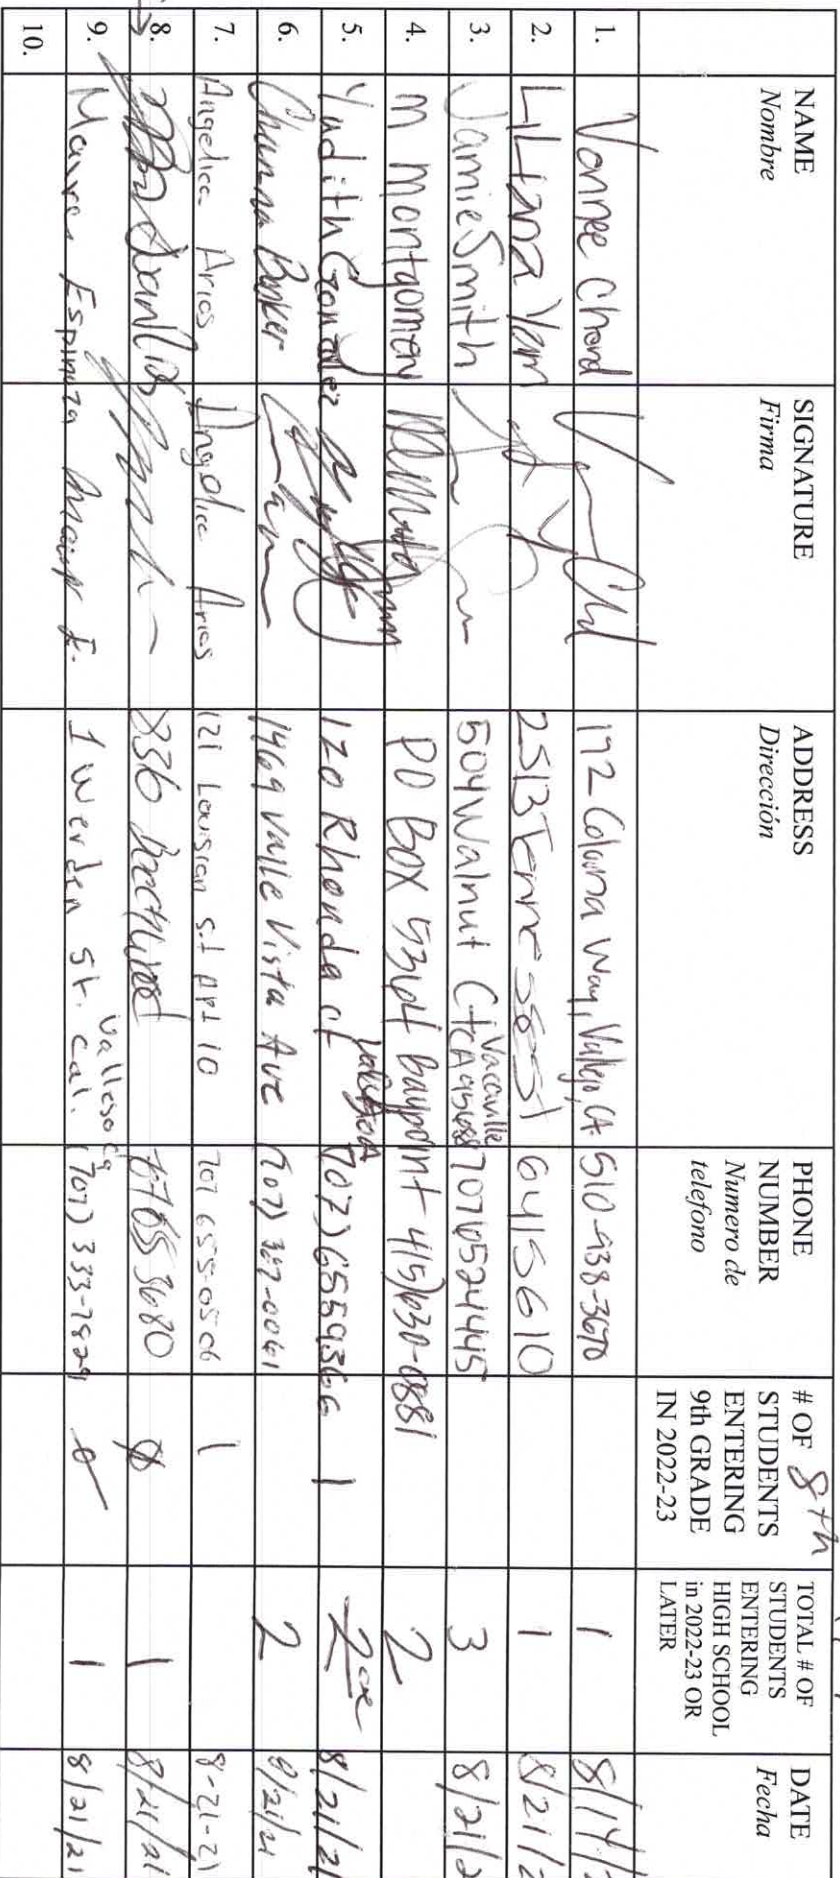 NAME
Nombre
SIGNATURE
Firma
ADDRESS
Dirección
PHONE
NUMBER
Numero de
telefono
# OF 8th
STUDENTS
ENTERING
9th GRADE
IN 2022-23
TOTAL # OF
STUDENTS
ENTERING
HIGH SCHOOL
in 2022-23 OR
LATER
DATE
Fecha
1. Vonnee Chard 172 Coloma Way, Vallejo, CA. 510-938-3670 1 8/14/
2. Liliana Yam 2513 641 5610 1 8/21/2
3. Jamie Smith 504 Walnut Ct Vacaville CA 95688 707 652 4445 3 8/21/2
4. M Montgomery PO BOX 5364 Baypoint 415)630-0881 2
5. Yudith Gonzalez 120 Rhonda ct (707) 6559366 1 2 8/21/21
6. Barker 1469 Valle Vista Ave (707) 327-0061 2 8/21/21
7. Angelica Arios Angelica Arios 121 Lousian s.t apt 10 707 655-0506 1 8-21-21
8. 836 3680 0 1 8/21/21
9. Espinoza E. 1 Werden St. Vallejo Ca Cal. (707) 333-7829 0 1 8/21/21
10.